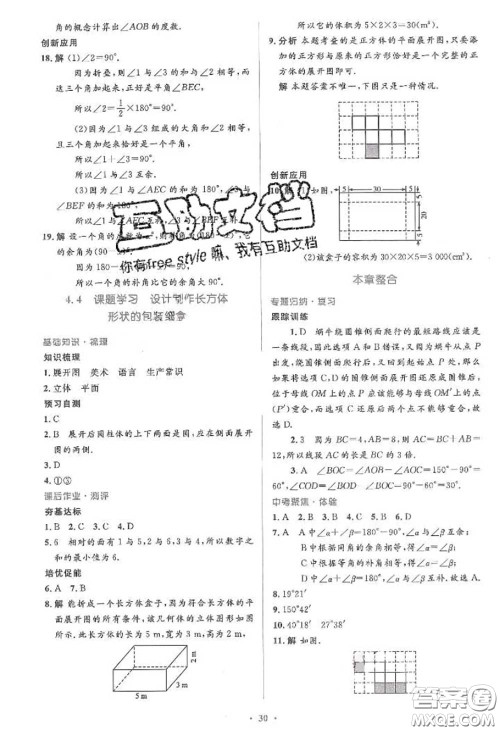 角的概念计算出∠AOB的度数.
创新应用
18.解 (1)∠2=90°.
因为折叠,则∠1与∠3的和与∠2相等,而
这三个角加起来,正好是平角∠BEC,
所以∠2=1/2×180°=90°.
(2)因为∠1与∠3组成的大角和∠2相等,且
三个角加起来恰好是一个平角,
所以∠1+∠3=90°.
所以∠1与∠3互余.
(3)因为∠1与∠AEC的和为180°,∠3与
∠BEF的和为180°,
所以∠1与∠AEC互补,∠3与∠BEF互补.
19.解 设一个角的度数为
余角为(90
所以一个角的补角比它的余角大90°.
4.4 课题学习 设计制作长方体
形状的包装纸盒
基础知识·梳理
知识梳理
1.展开图 美术 语言 生产常识
2.立体 平面
预习自测
1.C
2.B 展开后圆柱体的上下两面是圆,在侧面展开
图的两侧.
3.C
4.①③
课后作业·测评
夯基达标
1.B 2.C 3.B 4.C
5.6 相对的面有1与5,2与5,3与6,所以数字之
和的最小值为6.
培优促能
6.A 7.B
8.解 能围成一个长方体盒子,因为长方体的平面
展开图的所有条件,该几何体的立体图形如图
所示.此长方体的长为5 m,宽为3 m,高为2 m,
2 m
3 m
5 m
所以它的体积为5×2×3=30(m³).
9.分析 本题考查的是正方体的平面展开图,只要添
加的正方形与原来的正方形恰好是一个完整的正
方体的展开图即可.
解 本题答案不唯一,下图只是一种情况.
创新应用
10.解 (1)如图,
5
30
5
5
20
5
(2)该盒子的容积为30×20×5=3 000(cm³).
本章整合
专题归纳·复习
跟踪训练
1.D 蜗牛绕圆锥侧面爬行的最短路线应该是
一条线段,因此选项A和B错误,又因为蜗牛从P
点出发,绕圆锥侧面爬行后,又回到起始点P处,那
么如果将选项C,D的圆锥侧面展开图还原成圆锥后,
位于母线OM上的点P应该能够与母线OM′上的点
(P′)重合,而选项C还原后两个点不能够重合.
故选D.
2.3 因为BC=4,AB=8,所以AC=BC+AB=
12,所以线段AC是线段BC的3倍.
3.A ∠BOC=∠AOB-∠AOC=150°-90°=
60°,∠COD=∠BOD-∠BOC=90°-60°=30°.
中考聚焦·体验
1.A 2.B 3.C 4.D 5.C 6.D
7.A A中∠α+∠β=180°-90°=90°,互余;
B中根据同角的余角相等,可得∠α=∠β;
C中根据等角的补角相等,可得∠α=∠β;
D中∠α+∠β=180°,互补.故选A.
8.19°21′
9.150°42′
10.40°18′ 27°38′
11.解 如图,
互助文档
你有free style嘛、我有互助文档
· 30 ·
答案圈
MXQE.COM